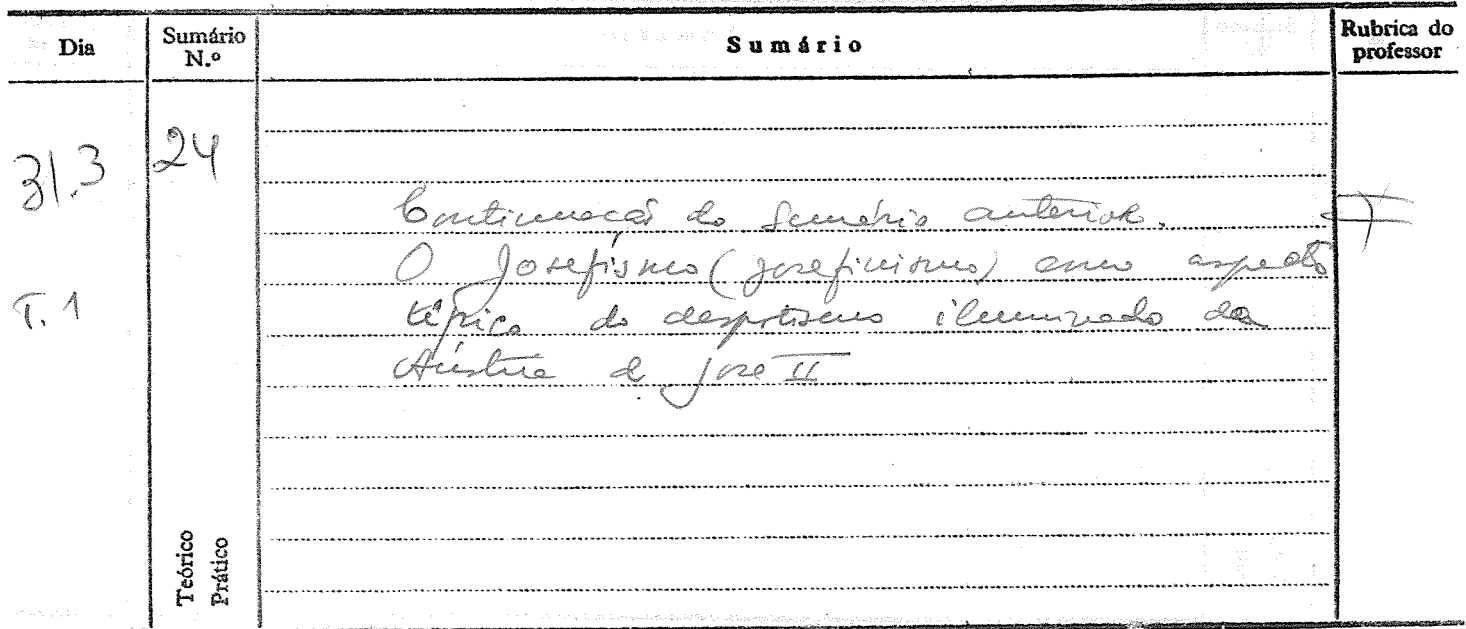 Dia Sumário N.º Sumário Rubrica do professor
31.3 24
Continuação do Sumário anterior.
O Josefismo (josefinismo) como aspecto
T. 1 típico do despotismo iluminado da
Áustria de José II
Teórico
Prático